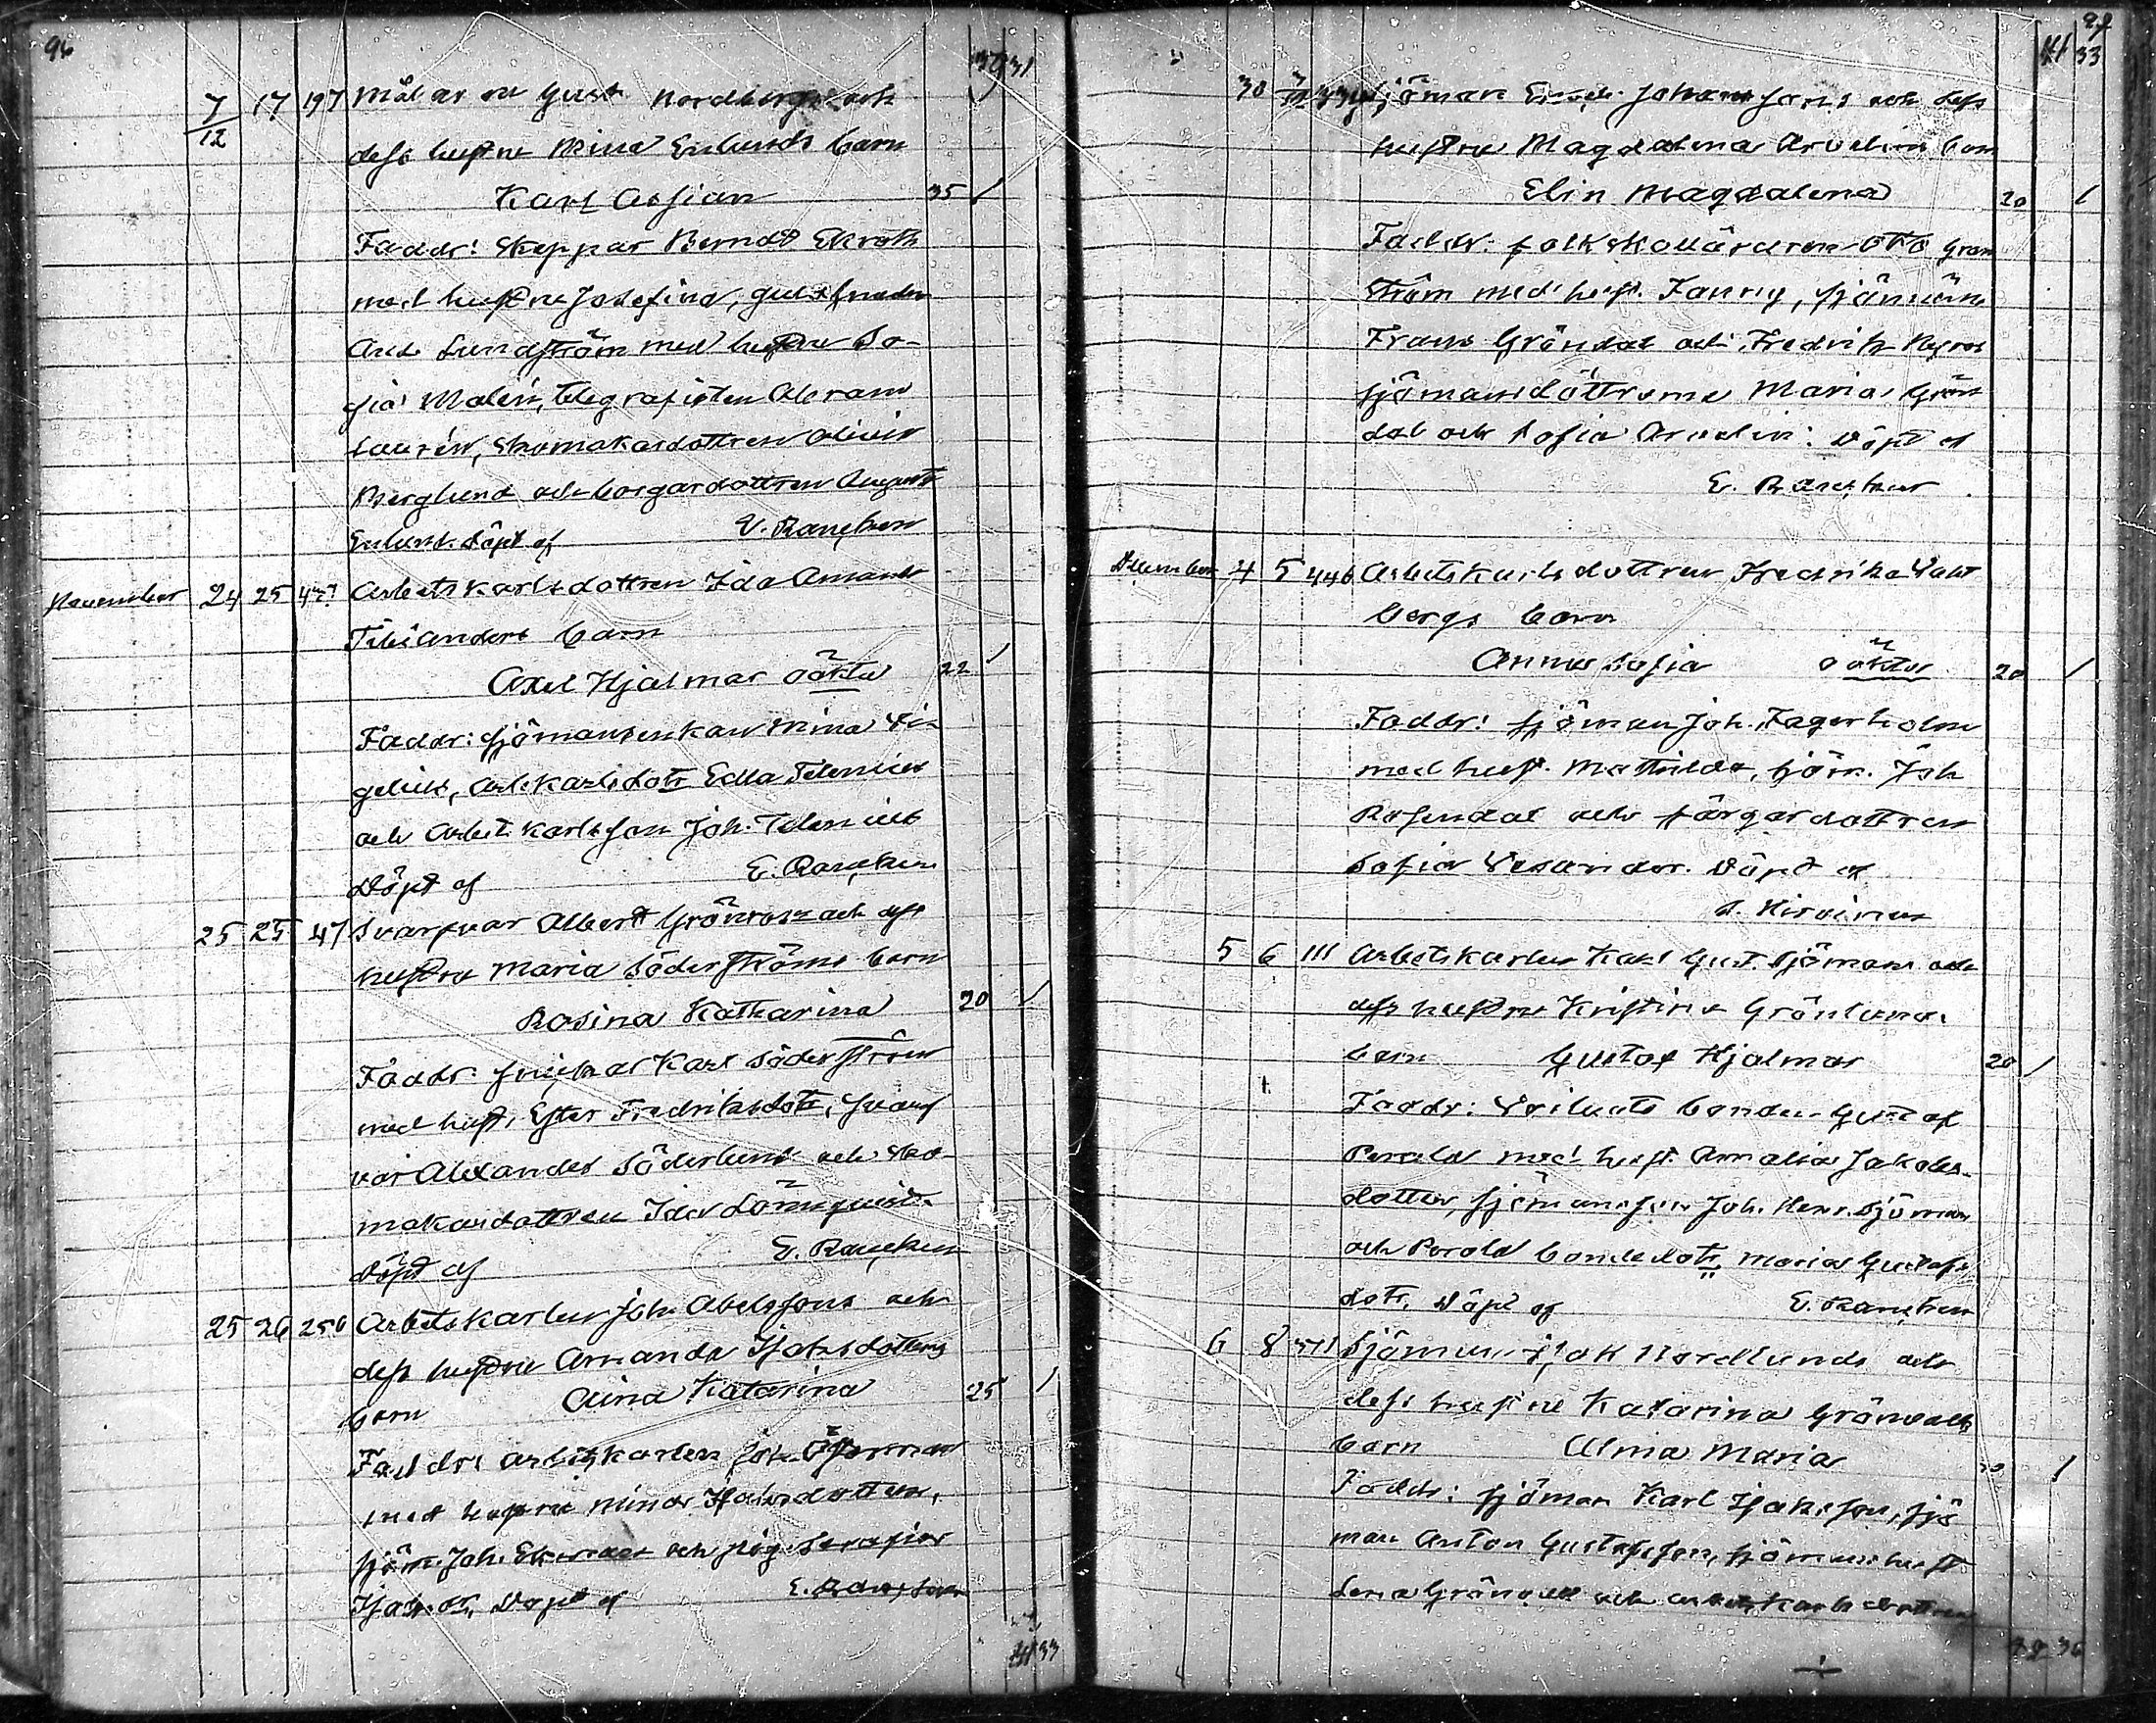 96
37 31
7/12 17 197 Målaren Gust Nordbergs och
dess hustru Mina Enlunds barn
Karl Ossian 35
Faddr: Skeppar Berndt Ekroth
med hustru Josefina,
And. Lundström med hustru So-
fia Malén, telegrafisten Abram
Laurén, skomakardottren Olivia
Berglund och borgardottren August
Enlund. Döpt af E. Rancken
November 24 25 Arbetskarlsdottren Ida Amanda
barn
Axel Hjalmar oäkta 22
Faddr: sjömansenkan Mina Vi-
gelius, Arb.karlsdotr Edla Telenius
och Arbet.karlsson Joh. Telenius
Döpt af E. Rancken
25 25 47 Svarfvar Albert Grönroos och dess
hustru Maria Söderströms barn
Rosina Katharina 20
Faddr: Karl Söderström
med hust. Ester Fredriksdotr, svarf
var Alexander Söderlund och sko
makardottren Ida Lönnqvist.
Döpt af E. Rancken
25 26 250 Arbetskarlen Joh. Abelssons och
dess hustru Amanda Isaksdotters
barn Aina Katarina 25
Faddr: Arbetskarlen Joh. Österman
med hustru Mina Isaksdotter,
sjöm. Joh. Ekman och pig. Serafia
Isaksdr. Döpt af E. Rancken
41 33
41 33
30 Sjöman Johanssons och dess
hustru Magdalena Arvelins barn
Elin Magdalena 20
Faddr: folkskolläraren Otto Gran
ström med hust. Fanny, sjömän
Frans Gröndal och Fredrik Nyros
sjömansdöttrarna Maria Grön
dal och Sofia Arvelin. Döpt af
E. Rancken
December 4 5 446 Arbetskarlsdottren Fredrika Dahl
bergs barn
Anna Sofia oäkta 20
Faddr: sjöman Joh. Fagerholm
med hust. Mathilda, sjöm. Joh
Rosendal och färgardottren
Sofia Vesander. Döpt af
Hirvinen
5 6 111 Arbetskarlen Karl Gust. Sjömans och
dess hustru Kristina Grönlunds
barn Gustaf Hjalmar 20
Faddr: bonden Gustaf
Perälä med hust. Amalia Jakobs-
dotter, sjömansson Joh. Henr. Sjöman
och Perälä bondedotr. Maria Gustafs
dotr. Döpt af E. Rancken
6 8 Sjöman Isak Nordlunds och
dess hustru Katarina Grönvalls
barn Alma Maria 20
Faddr: sjöman Karl Isaksson, sjö
man Anton Gustafsson, sjömanshust
Lena Grönvall och arbetskarlsdottren
42 36